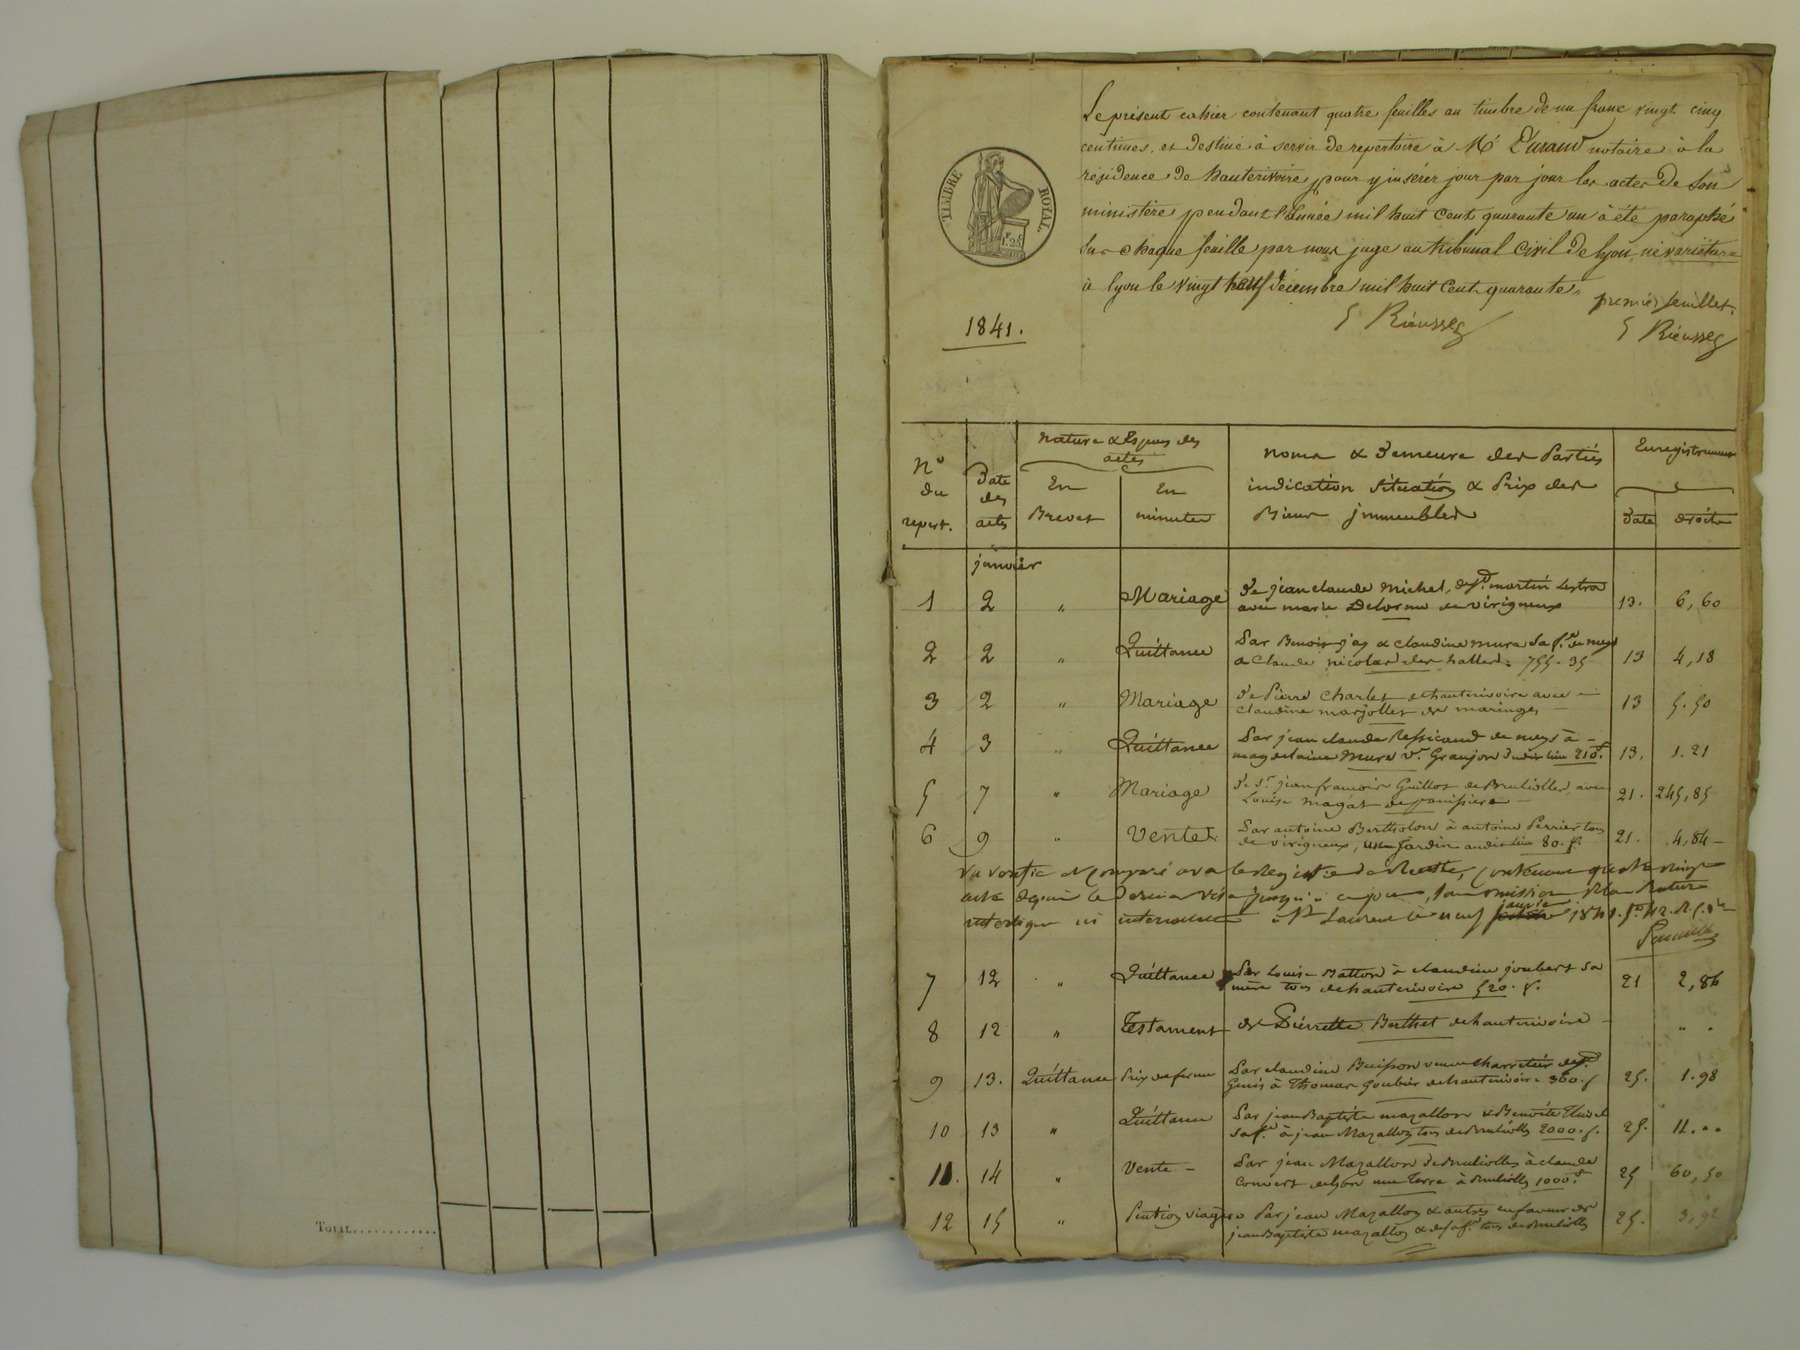 Total............
TIMBRE ROYAL
1F.25C
Le présent cahier contenant quatre feuilles au timbre de un franc vingt cinq
centimes, est destiné à servir de repertoire à Me Durand notaire à la
résidence de hauterivoire, pour y insérer jour par jour les actes de son
ministère, pendant l'année mil huit cent quarante un à été paraphé
sur chaque feuille par nous juge au tribunal civil de lyon, ne varietur
à lyon le vingt huit décembre mil huit cent quarante.
premier feuillet.
1841.
No du repert.
Date des actes
Nature & Especes des actes
En Brevet
En minutes
noms & Demeure des Parties
indication Situation & Prix des
Biens jmmeubles
Enregistrement
Date
droits
janvier
1 2 " Mariage De jean claude Michel, de St. martin Lestra
avec marie Delorme de virigneux 13. 6,60
2 2 " Quittance Par Benoit jay & claudine mure sa fe. de meys
a claude nicolas des halles. 755.35 13 4,18
3 2 " Mariage De Pierre Charles de hauterivoire avec
claudine marjollet de maringes 13 5.50
4 3 " Quittance Par jean claude de meys à
magdelaine mure ve. Granjon dudit lieu 210f. 13. 1.21
5 7 " Mariage De Sr. jean francois Guillot de Brullioles, avec
Louise magat de panissiere 21. 245,85
6 9 " Vente Par antoine Bertholon à antoine Perrier tous
de virigneux, un jardin audit lieu 80.f. 21. 4,84
Vu
1841.
7 12 " Quittance Par Louis Batton à claudine joubert sa
mère tous de hauterivoire 520.f. 21 2,86
8 12 " Testament de Pierrette Berthet de hauterivoire " "
9 13. Quittance Prix de ferme Par claudine Buisson veuve charretier de St.
Genis à Thomas Goubier de hauterivoire 360.f 25. 1.98
10 13 " Quittance Par jean Baptiste mazallon & Benoite
sa fe. à jean Mazallon tous de Brullioles 2000.f. 25. 11...
11. 14 " Vente Par jean Mazallon de Brullioles à claude
Convert de lyon une Terre à Brullioles 1000f. 25 60,50
12 15 " Pention viagère Par jean Mazallon & autres en faveur de
jean Baptiste mazallon & de sa fe. tous de Brullioles 25. 3,92